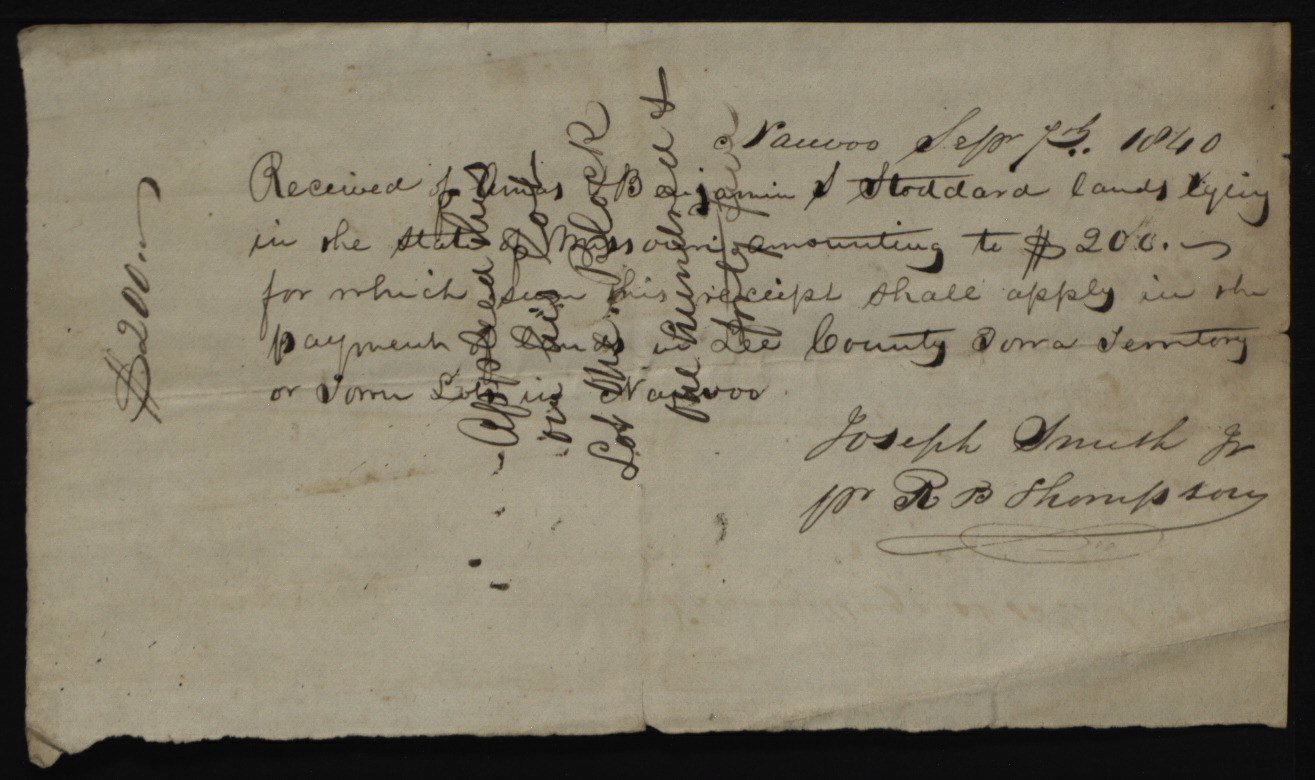 Nauvoo Sepr 7th. 1840
Received of Amos & Benjamin S Stoddard lands lying
in the state of Missouri amounting to $200.
for which sum this receipt shall apply in the
payment of lands in Lee County Iowa Territory
or Town Lots in Nauvoo
Joseph Smith Jr
pr R B Thompson
$200..
Applied this
on his Lot
Lot one Block
one hundred &